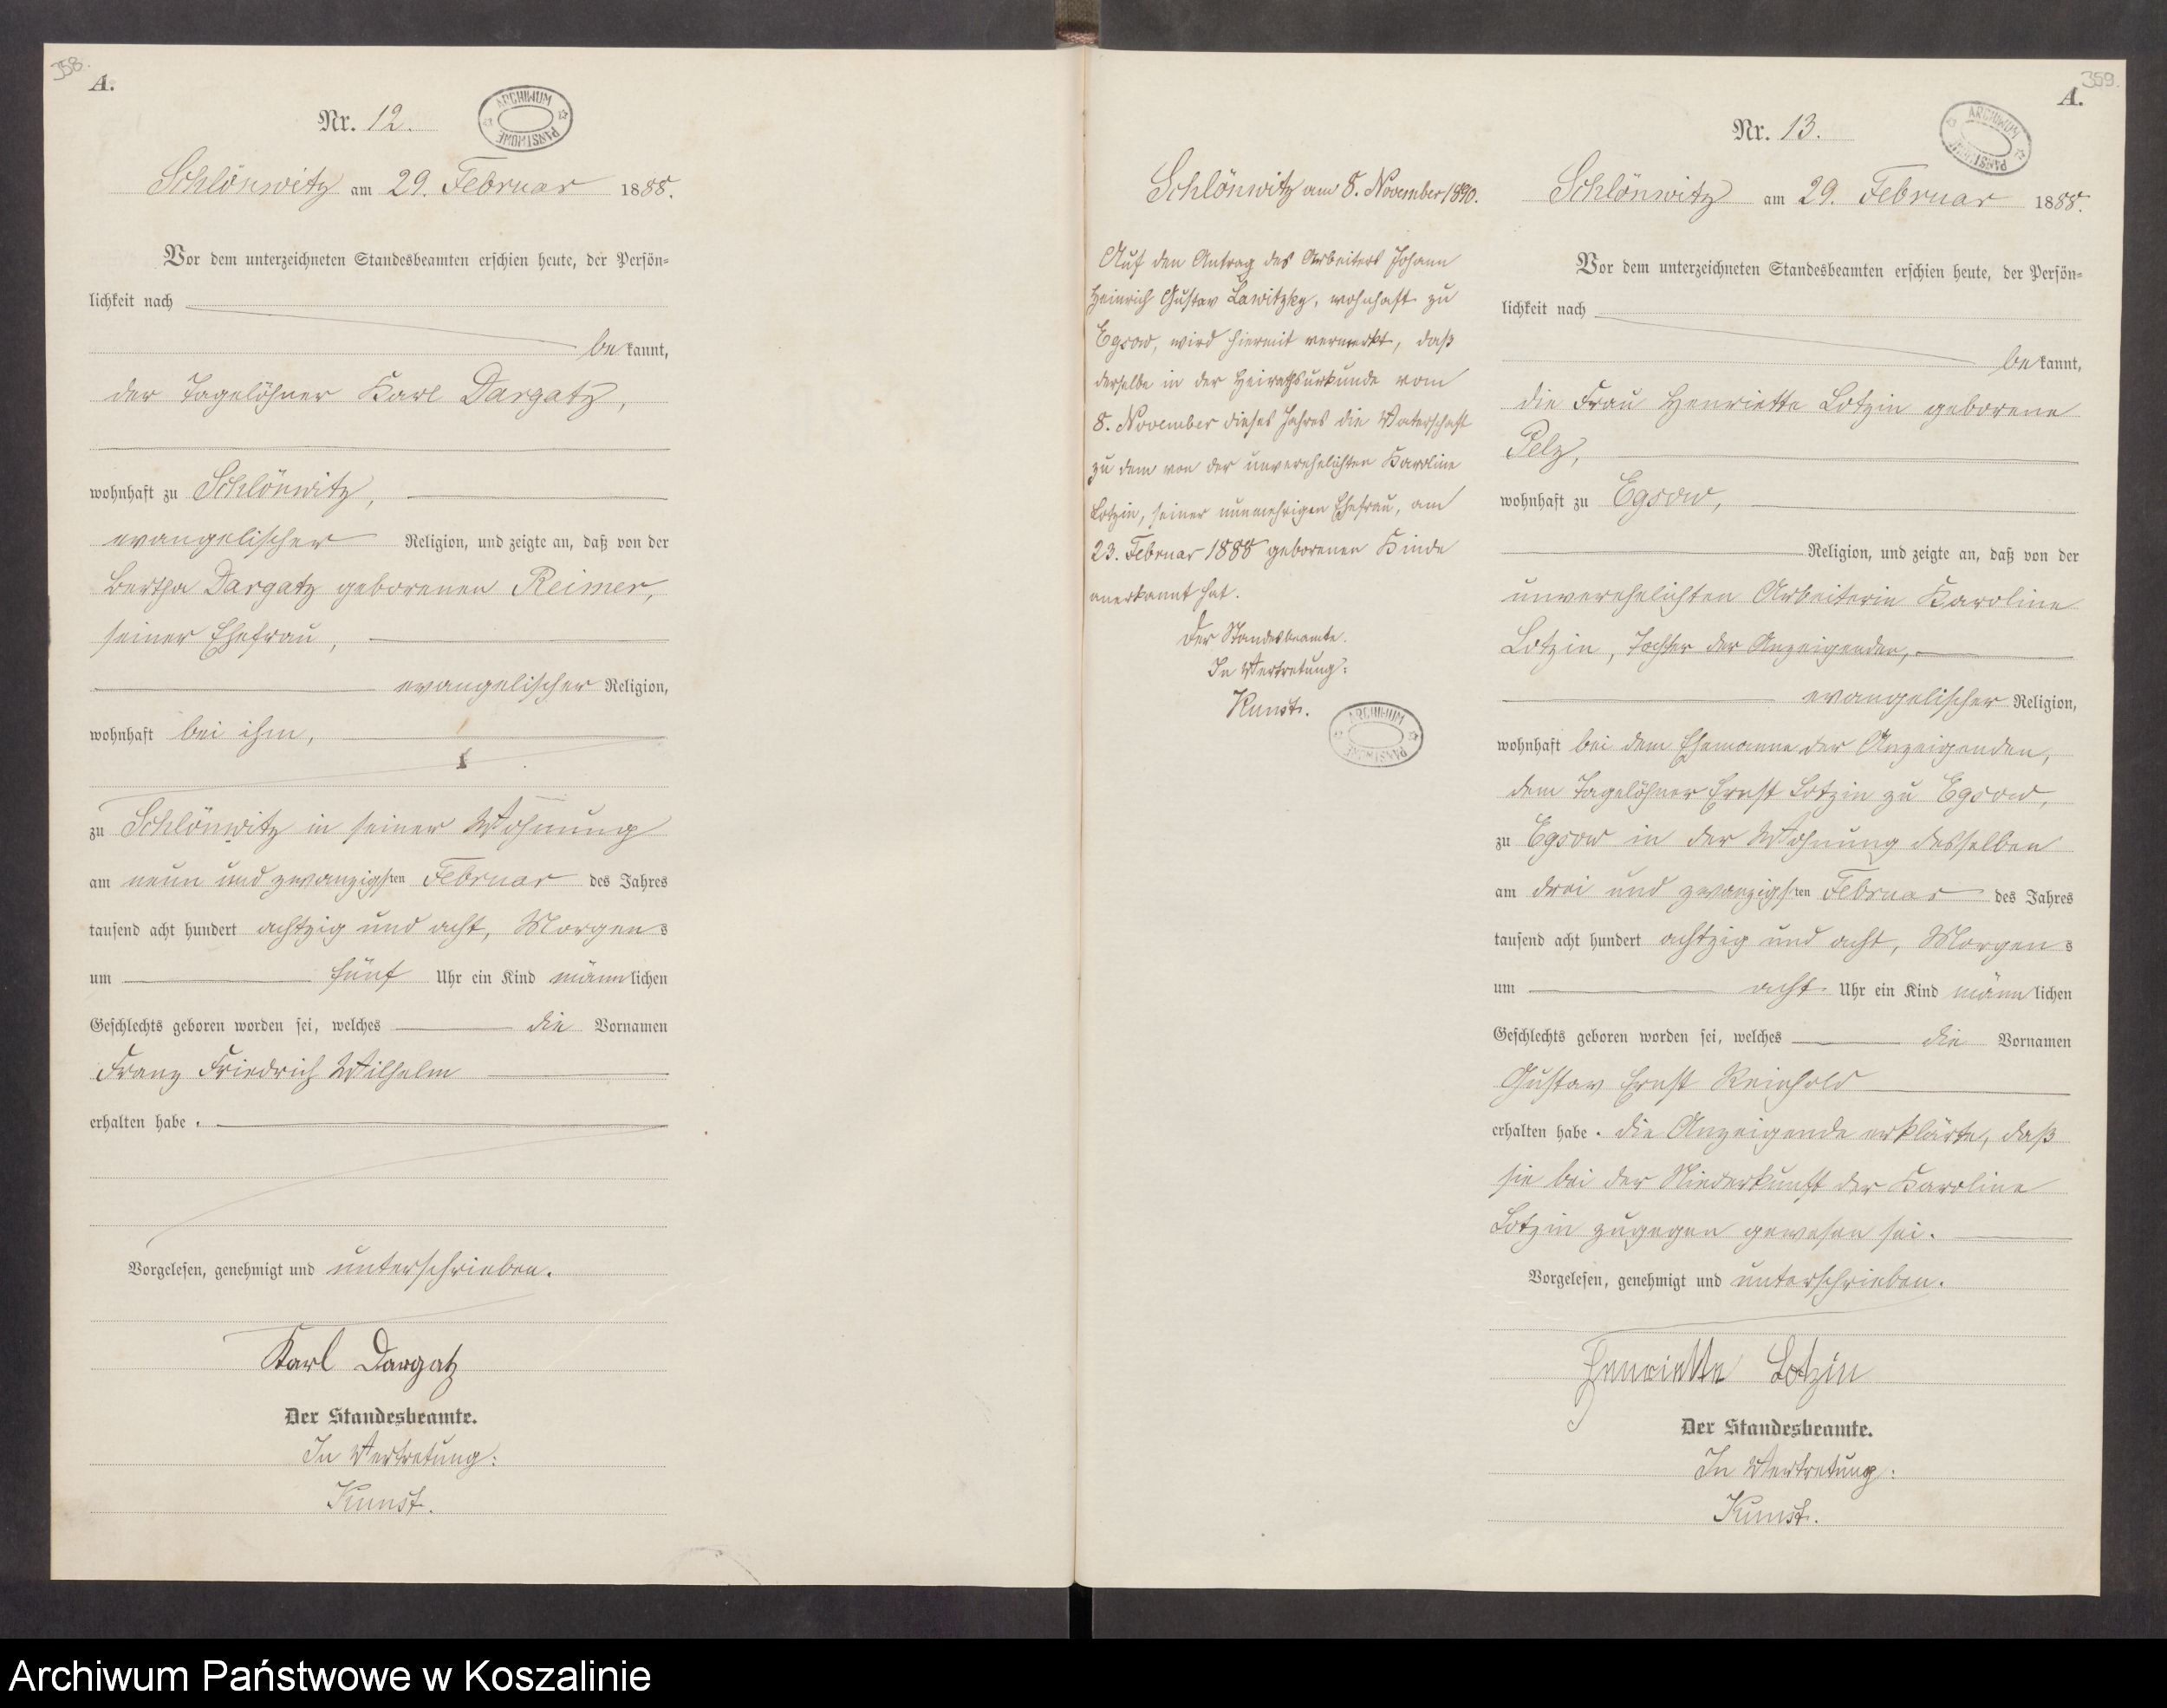 358.
A.
Nr. 12.
ARCHIWUM PAŃSTWOWE
Schlönwitz am 29. Februar 1888.
Vor dem unterzeichneten Standesbeamten erschien heute, der Persön-
lichkeit nach
bekannt,
der Tagelöhner Karl Dargatz,
wohnhaft zu Schlönwitz,
evangelischer Religion, und zeigte an, daß von der
Bertha Dargatz geborenen Reimer,
seiner Ehefrau,
evangelischer Religion,
wohnhaft bei ihm,
zu Schlönwitz in seiner Wohnung
am neun und zwanzigsten Februar des Jahres
tausend acht hundert achtzig und acht, Morgens
um fünf Uhr ein Kind männlichen
Geschlechts geboren worden sei, welches die Vornamen
Franz Friedrich Wilhelm
erhalten habe.
Vorgelesen, genehmigt und unterschrieben.
Karl Dargatz
Der Standesbeamte.
In Vertretung:
Kunst.
Schlönwitz am 8. November 1890.
Auf den Antrag des Arbeiters Johann
Heinrich Gustav Lawitzky, wohnhaft zu
Egsow, wird hiermit vermerkt, daß
derselbe in der Heirathsurkunde vom
8. November dieses Jahres die Vaterschaft
zu dem von der unverehelichten Karoline
Lotzin, seiner nunmehrigen Ehefrau, am
23. Februar 1888 geborenen Kinde
anerkannt hat.
Der Standesbeamte.
In Vertretung:
Kunst.
ARCHIWUM PAŃSTWOWE
359.
A.
Nr. 13.
ARCHIWUM PAŃSTWOWE
Schlönwitz am 29. Februar 1888.
Vor dem unterzeichneten Standesbeamten erschien heute, der Persön-
lichkeit nach
bekannt,
die Frau Henriette Lotzin geborene
Pelz,
wohnhaft zu Egsow,
Religion, und zeigte an, daß von der
unverehelichten Arbeiterin Karoline
Lotzin, Tochter der Anzeigenden,
evangelischer Religion,
wohnhaft bei dem Ehemanne der Anzeigenden,
dem Tagelöhner Ernst Lotzin zu Egsow,
zu Egsow in der Wohnung desselben
am drei und zwanzigsten Februar des Jahres
tausend acht hundert achtzig und acht, Morgens
um acht Uhr ein Kind männlichen
Geschlechts geboren worden sei, welches die Vornamen
Gustav Ernst Reinhold
erhalten habe. Die Anzeigende erklärte, daß
sie bei der Niederkunft der Karoline
Lotzin zugegen gewesen sei.
Vorgelesen, genehmigt und unterschrieben.
Henriette Lotzin
Der Standesbeamte.
In Vertretung:
Kunst.
Archiwum Państwowe w Koszalinie